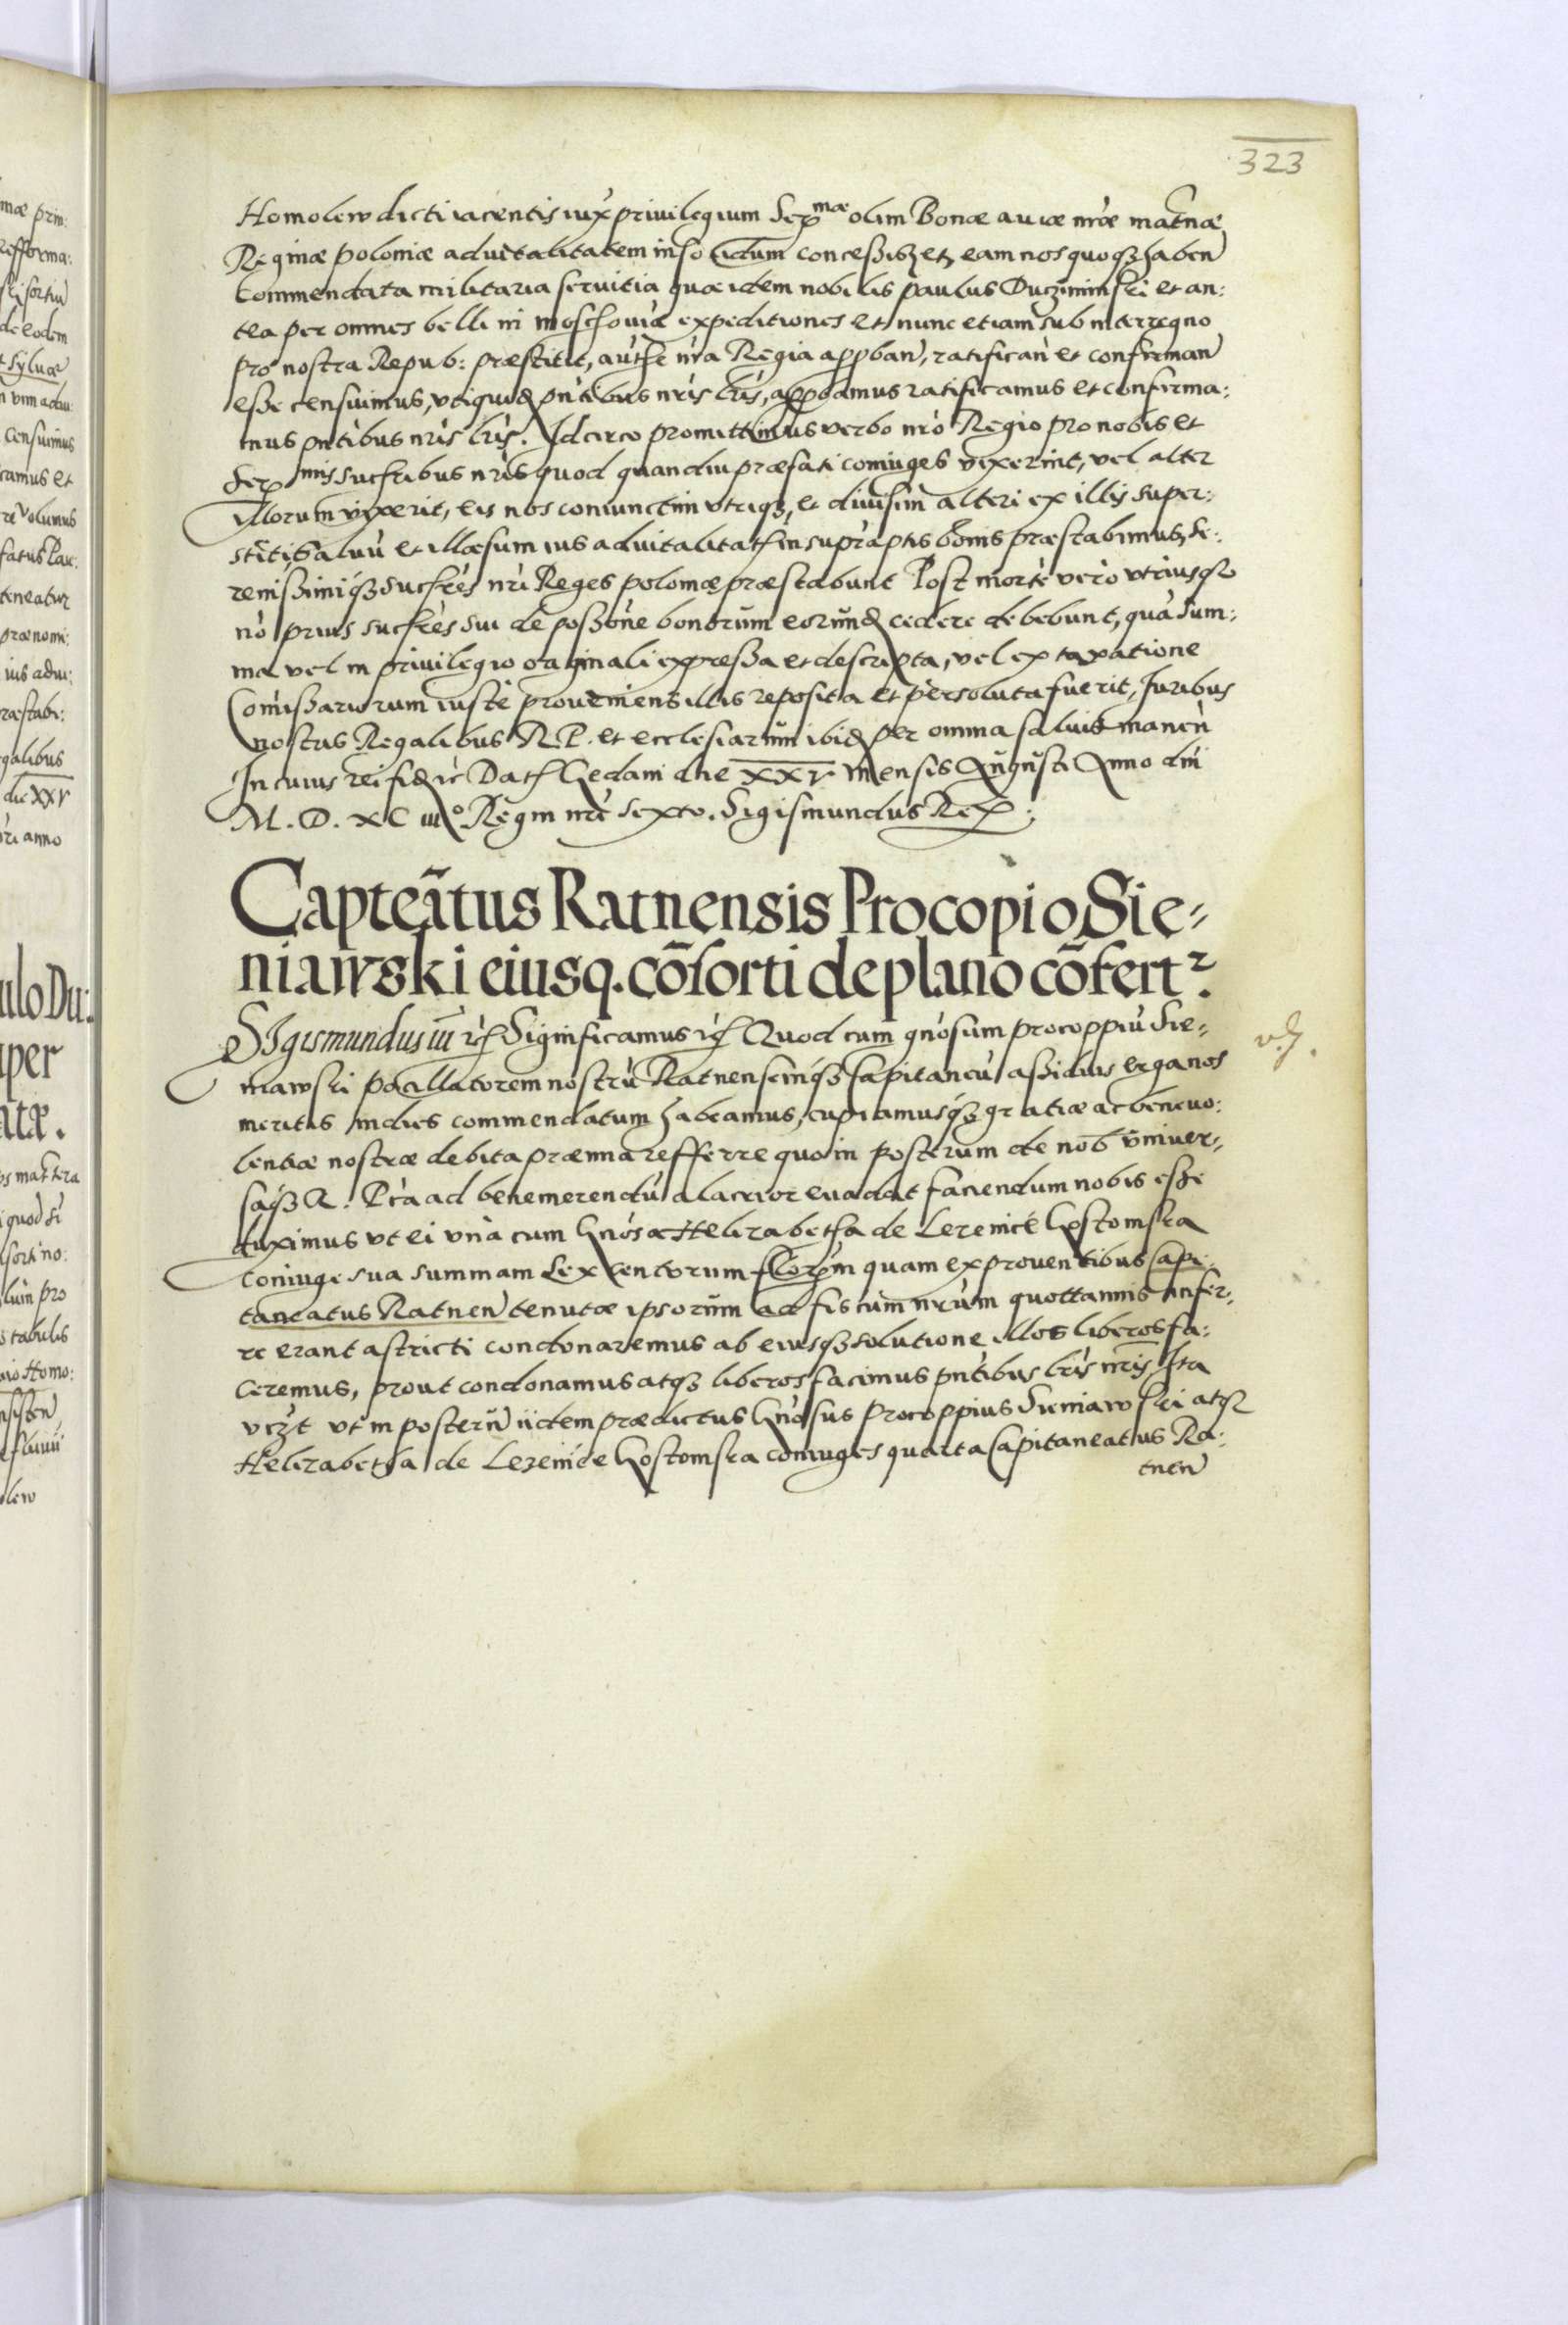 323
Homolew dicti iacentis iux privilegium Ser mæ olim Bonæ aviæ nræ matnæ
Reginæ poloniæ ad vitalitatem inso lidum concessis et eam nos quoq haben
Commendata militaria servitia quæ idem nobilis paulus Ducziminski et an:
tea per omnes belli in moschovia expeditiones et nunc etiam sub interregno
pro nostra Repub: præstitit, authe nra Regia appban, ratifican et confirman
esse censuimus, vtiquid pntibus nris lris, appbamus ratificamus et confirma:
mus pntibus nris lris. Idcirco promittimus verbo nro Regio pro nobis et
Ser mis succribus nris quod quandiu præfati coniuges vixerint, vel alter
illorum vixerit, eis nos coniunctim vtriq, et divisim alteri ex illis super:
stiti, salvu et illæsum ius advitalitath in supraptis bonis præstabimus, Se:
renissimiq succres nri Reges poloniæ præstabunt Post morte vero vtriusq
no prius succres sui de possone bonorum eorund cedere debebunt, qua sum:
ma vel in privilegio originali expressa et descripta, vel ex taxatione
Comissariorum iuste proveniens illis reposita et persoluta fuerit, Iuribus
nostris Regalibus R.P. et ecclesiarum ibid per omnia salvis manen
In cuius rei fid ic Dath Gedani die XXV mensis Augusti Anno dni
M. D. XC iii o Regni nri sexto. Sigismundus Rex:
Capteatus Ratnensis Procopio Sie-
niawski eiusq. cosorti de plano cofert.
SIgismundus iii ic Significamus ic Quod cum gnosum procoppiu Sie-
niawski pocillatorem nostru Ratnensemq Capitaneu assiduis erga nos
meritis indies commendatum habeamus, cupiamusq gratiæ ac benevo:
lentiæ nostræ debita præmia refferre quo in posterum de nob vniver-
saq R. Pca ad benemerendu alacrior evadat faciendum nobis esse
duximus vt ei vna cum Gnosa Helizabetha de Lezenice Gostomska
coniuge sua summam sex centorum florem quam ex proventibus Capi:
taneatus Ratnen tenutæ ipsorum ad fiscum nrum quottannis infer-
re erant astricti condonaremus ab eiusq solutione illos liberos fa:
ceremus, prout condonamus atq liberos facimus pntibus lris nris Ita
vizt vt in posteru iidem prædictus Gnosus Procoppius Sieniawski atq
Helizabetha de Lezenice Gostomska coniuges quarta Capitaneatus Ra-
tnen